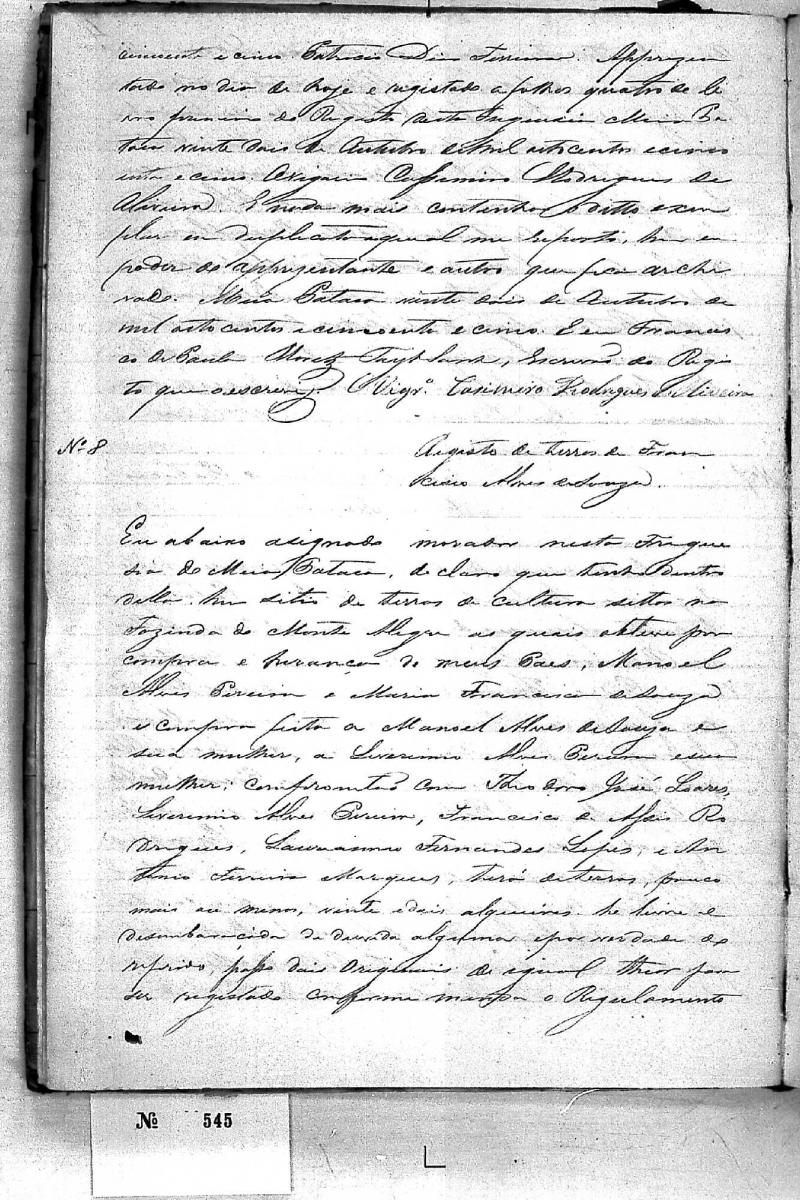 cincoente e cinco. Patricio Dias Ferreira. Apprezen
tado no dia de hoje e registado a folhas quatro do li
vro primeiro do Registo desta Freguesia Meia Pa
taca vinte dois de Outubro de mil oitocentos e cinco
enta e cinco. O Vigario Cassimiro Rodrigues de
Oliveira. E nada mais continha o ditto exem
plar em duplicata a qual me reporto, hum em
poder do aprezentante e outro que fica archi
vado. Meia Pataca vinte dois de Outubro de
mil oitocentos e cincoente e cinco. E eu Francis
co de Paula Moretz, Escrivão do Regis
to que o escrevy. O Vigr.º Casimiro Rodrigues de Oliveira
Nº 8
Registo de terras de Fran
cisco Alves de Souza.
Eu abaixo asignado morador nesta Fregue
sia de Meia Pataca, declaro que tenho dentro
della hum sitio de terras de cultura sittos na
Fazenda do Monte Alegre as quais obtive por
compra e herança de meus Paes, Manoel
Alves Pereira e Maria Francisca de Souza
e compra feita a Manoel Alves de Souza e
sua mulher, a Severinio Alves Pereira e sua
mulher; confrontão com Theodoro José Soares,
Severinio Alves Pereira, Francisco de Assis Ro
drigues, Laurianno Fernandes Lopes, e An
tonio Ferreira Marques, terá de terras, pouco
mais ou menos, vinte e dois alqueires. he livre e
desembaraçada de duvida alguma e por verdade do
referido, passo dois Originais de igual theor para
ser registado conforme manda o Regulamento
Nº 545